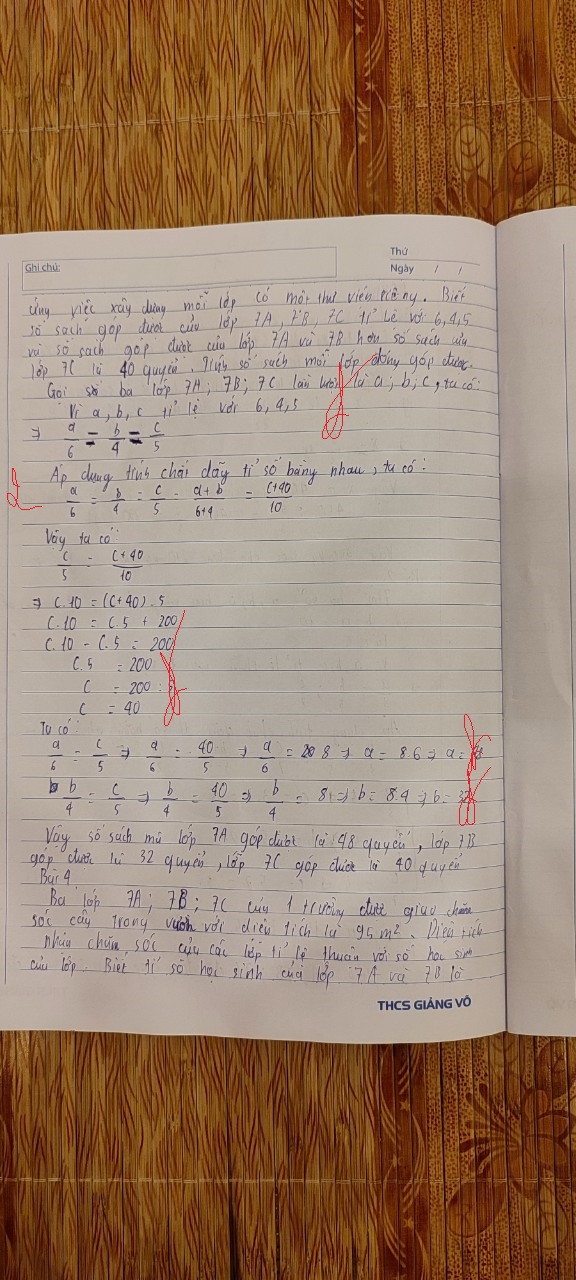 Ghi chú:
Thứ
Ngày / /
ứng việc xây dựng mỗi lớp có một thư viện riêng. Biết
số sách góp được của lớp 7A, 7B, 7C tỉ lệ với 6,4,5
và số sách góp được của lớp 7A và 7B hơn số sách của
lớp 7C là 40 quyển. Tính số sách mỗi lớp đóng góp được.
Gọi số ba lớp 7A; 7B; 7C lần lượt là a; b; c, ta có:
Vì a, b, c tỉ lệ với 6, 4, 5
⇒ a/6 = b/4 = c/5
Áp dụng tính chất dãy tỉ số bằng nhau, ta có:
2
a/6 = b/4 = c/5 = a+b/6+4 = c+40/10
Vậy ta có:
c/5 = c+40/10
⇒ c.10 = (c+40).5
c.10 = c.5 + 200
c.10 - c.5 = 200
c.5 = 200
c = 200 : 5
c = 40
Ta có:
a/6 = c/5 ⇒ a/6 = 40/5 ⇒ a/6 = 8 ⇒ a = 8.6 ⇒ a =
b/4 = c/5 ⇒ b/4 = 40/5 ⇒ b/4 = 8 ⇒ b = 8.4 ⇒ b = 32
Vậy số sách mà lớp 7A góp được là 48 quyển, lớp 7B
góp được là 32 quyển, lớp 7C góp được là 40 quyển
Bài 4
Ba lớp 7A; 7B; 7C của 1 trường được giao chăm
sóc cây trong vườn với diện tích là 95m². Diện tích
nhận chăm sóc của các lớp tỉ lệ thuận với số học sinh
của lớp. Biết tỉ số học sinh của lớp 7A và 7B là
THCS GIẢNG VÕ